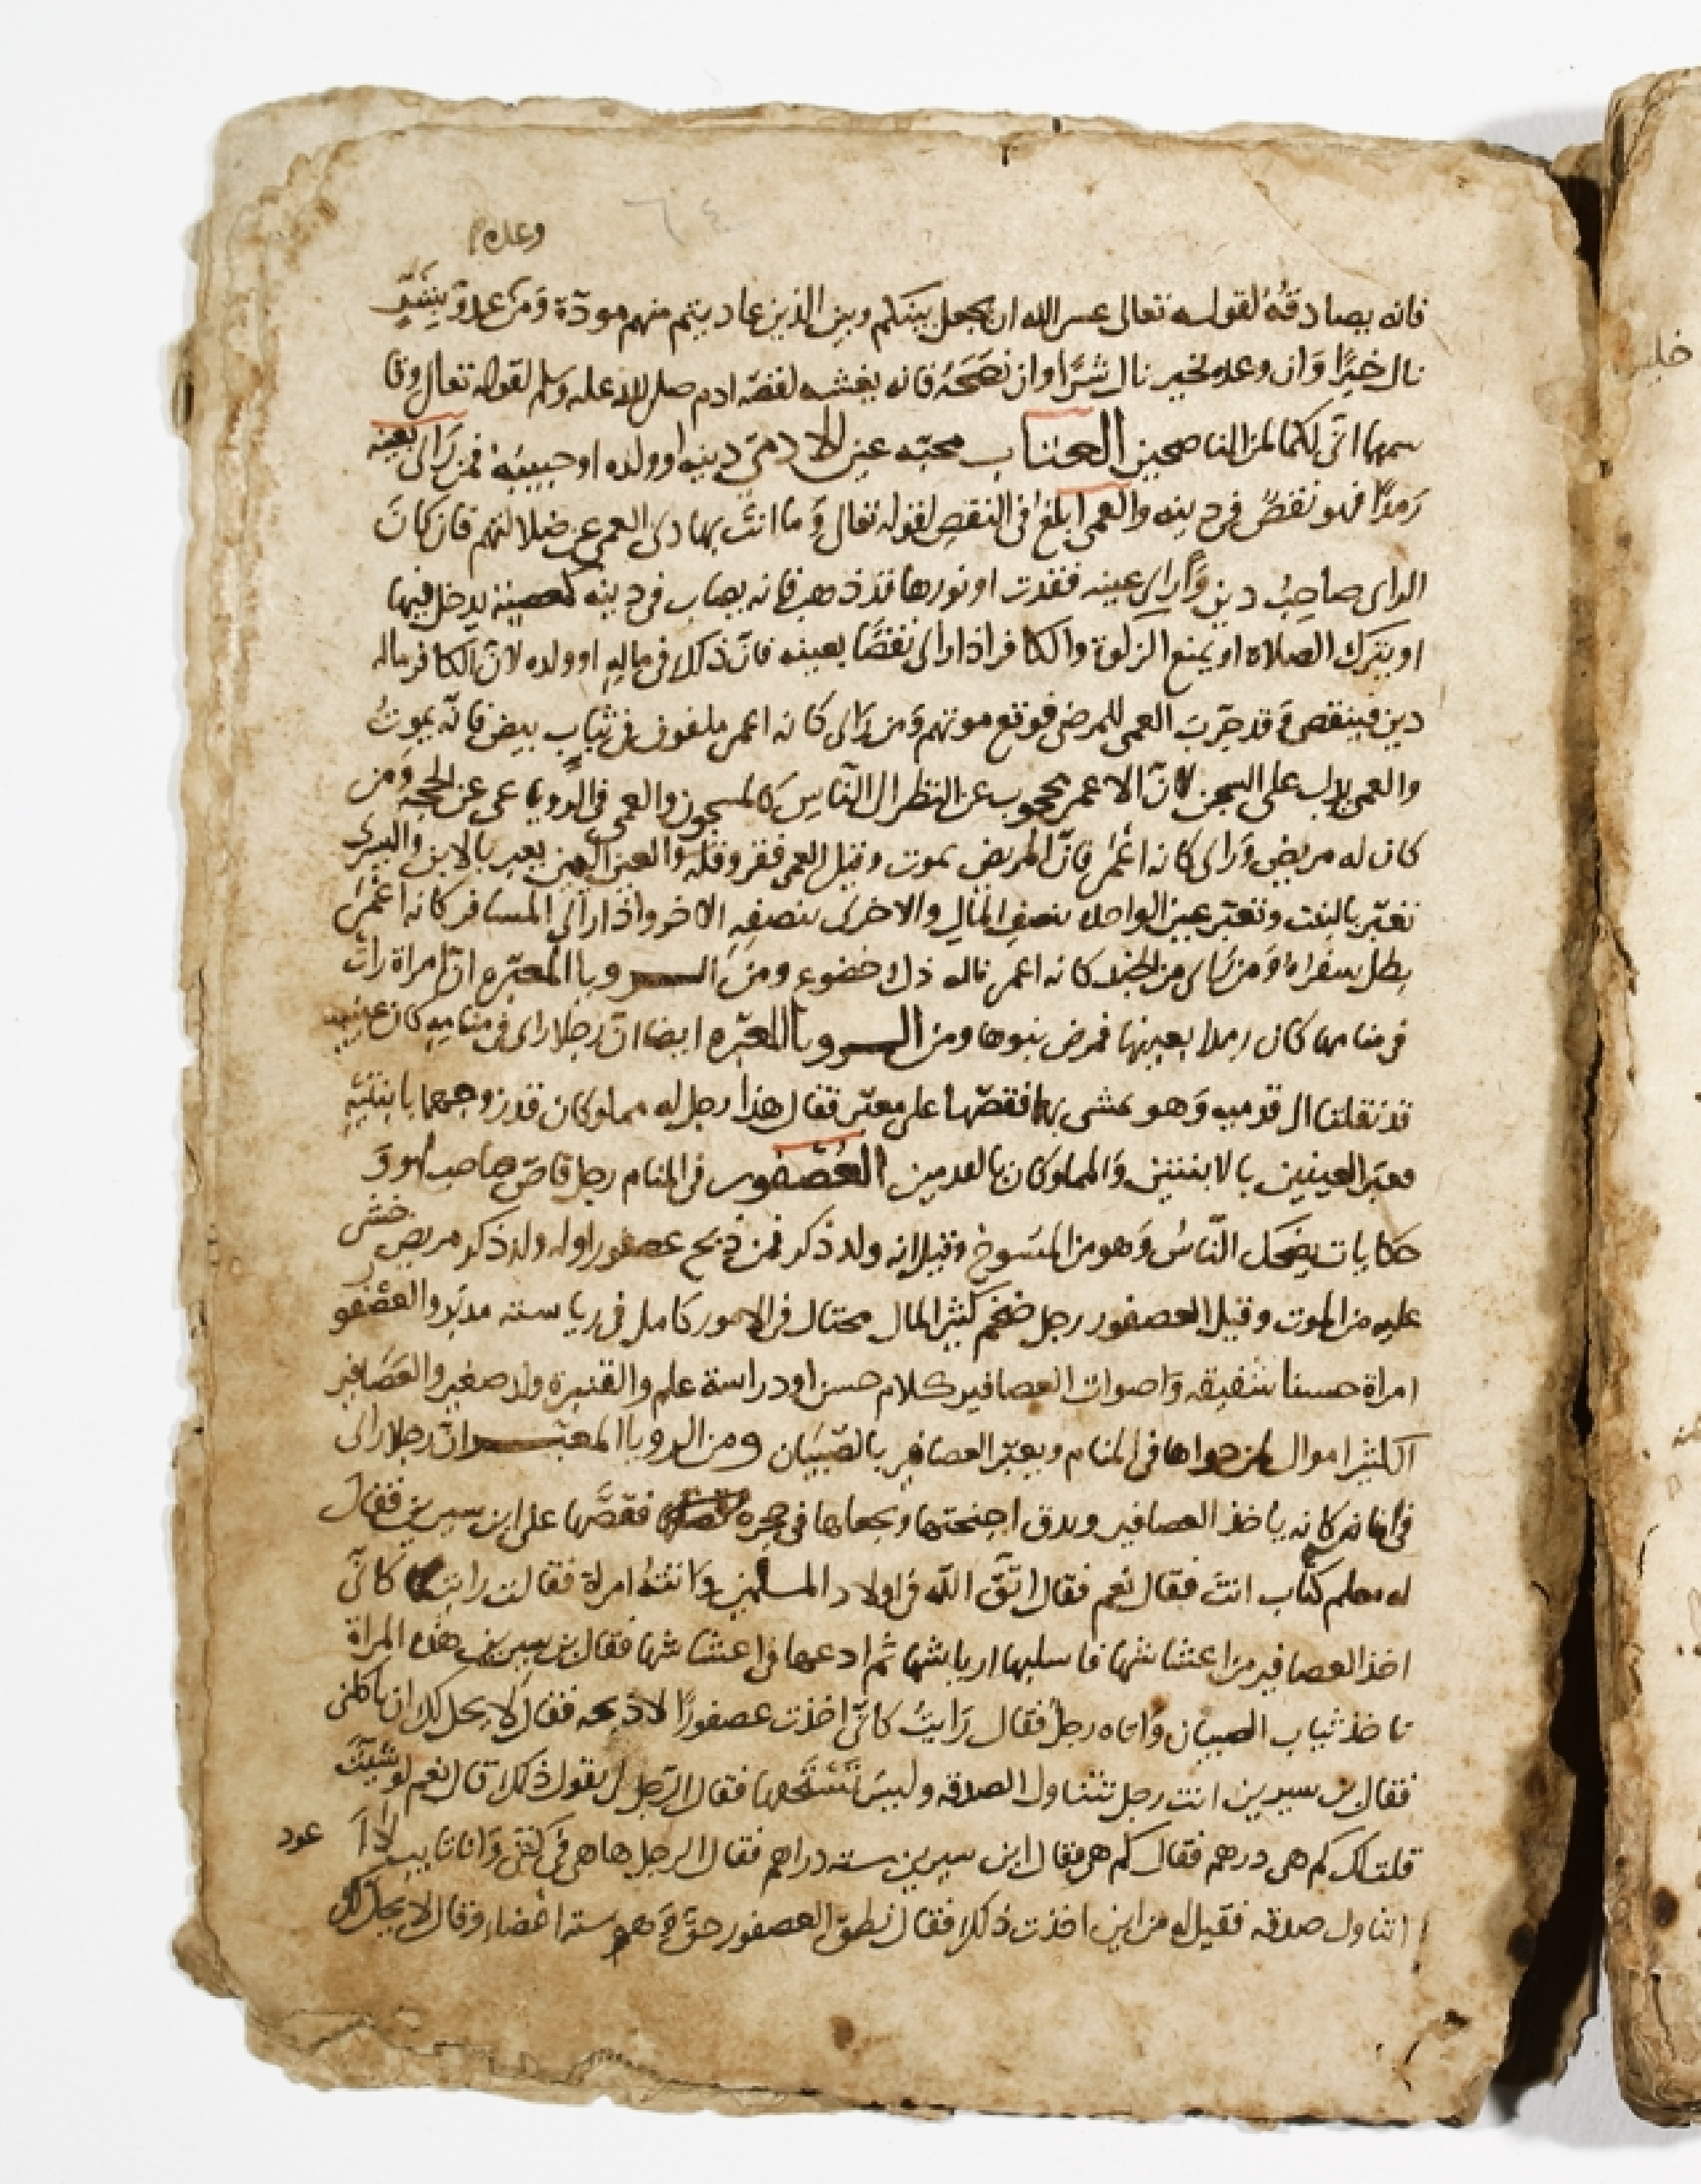 وعده
٦٤
فانه يصادقهُ لقوله تعالى عسى الله ان يجعل بينكم وبين الذين عاديتم منهم مودّة وَمن عدوّ يبشّر
نال خيرًا وَان وعده بخير نال شرًّا وان نصَحَهُ فانه يغشه لقصّة ادم صلى الله عليه وسلم لقوله تعالى وقا
سمهما انّى لكما لمن الناصحين العتاب محبّه عين الادمىّ دينه اوولده او حبيبه فمن رَاى بعينه
رَمدًا فهو نقصٌ فى دينه والعمى ابلغ فى النقصِ لقوله تعالى وَما انتَ بهادى العمى عن ضلالتهم فان كانَ
الراى صاحِبُ دين وَراى عينه فقدت او نورها قد ذهب فانه يصاب فى دينه كمصيبة يدخل فيها
اويترك الصلاة او يمنع الزكوة والكافر اذا راى نقصًا بعينه فانّ ذلك فى مالهِ اوولده لانّ الكافر ماله
دين فينقص وَقد جرّبَ العمى للمرضى فوقع موتهم وَمن رَاى كانه اعمى ملفوف فى ثيابٍ بيض فانّه يموتُ
والعمى يدل على السجن لانّ الاعمى محجوب عن النظر الى النّاسِ كالمسجون والعمى فى الرويا عمى عن الحجه وَمن
كان له مريض وَراى كانه اعمى فانّ المريض يموت وقيل العمى فقر وقله والعين اليمين تعبر بالابن واليسرى
تعبّر بالبنت وتعبّر عين الواحده بنصفِ المالِ والاخرى بنصفهِ الاخر واذا راى المسافر كانه اعمَى
بطل سفراه وَمن رَاى من الجند كانه اعمى ناله ذل وخضوع ومن الرويا المعبّره انّ امراة رات
فى منامها كان رملا بعينها فمرض بنوها ومن الرويا المعبّره ايضا انّ رجلا راى فى منامهِ كان عينيه
قد نقلتا الى قدميه وَهو يمشى بهما فقصّها على معبّر فقال هذا رجل له مملوكان قد زوجهما بابنتيه
فعبّر العينين بالابنتين وَالمملوكان بالقدمين العُصفور فى المنام رجل قاصّ صاحب لهو وَ
حكايات يضحك النّاسُ وَهو من المسُوخ وقيل انه ولد ذكر فمن ذبح عصفورا وله ولد ذكر مريض خشى
عليه من الموت وقيل العصفور رجل ضخم كثير المال محتال فى الامور كامل فى رياسته مدبّر والعصفور
امراة حسنا شفيقه وَاصوات العصافير كلام حسن او دراسة علم والقنبرة ولد صغير والعصَافير
الكثير اموال لمن حواها فى المنام ويعبّر العصافير بالصّبيَان ومن الرويا المعبّر انّ رجلا راى
فى منامه كانه ياخذ العصافير ويدق اجنحتها ويجعلها فى حجره فقصّها على ابن سيرين فقال
له معلم كتّاب انتَ فقال نعم فقال اتّق اللّه فى اولاد المسلمين واتتهُ امراة فقالت رايت كانّى
اخذ العصافير من اعشاشها فاسلبها ارياشها ثم ادعها فى اعشاشها فقال بن سيرين هذه المراة
تاخذ ثياب الصبيان واتاه رجل فقال رَايتُ كانّى اخذت عصفورًا لاذبحه فقال لا يحل لك ان تاكلنى
فقال بن سيرين انت رجل تتناول الصدقه وليسَ تستحقها فقال الرّجل لى تقول ذلك قال نعم لو شيتَ
قلت لك كم هى درهم فقال كم هى فقال ابن سيرين سته دراهم فقال الرجل هاهى فى كفى وَانا تايب لا اَ
عود
اتناول صدقه فقيل له من اين اخذت ذلك فقال نطق العصفور حقّ وَهو سته اعضاء وقال لا يحل لك